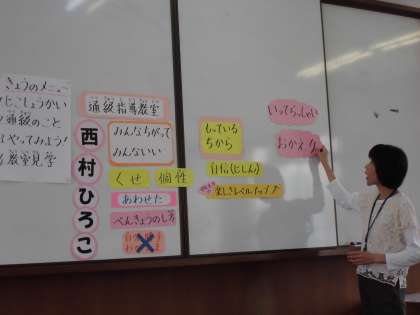 きょうのメニュー
じこしょうかい
通級のこと
やってみよう!
教室見学
通級指導教室
西村ひろこ
みんなちがって
みんないい
くせ
個性
あわせた
べんきょうのし方
もっている
ちから
自信(じしん)
楽しさレベルアップ♪
いってらっしゃい
おかえり